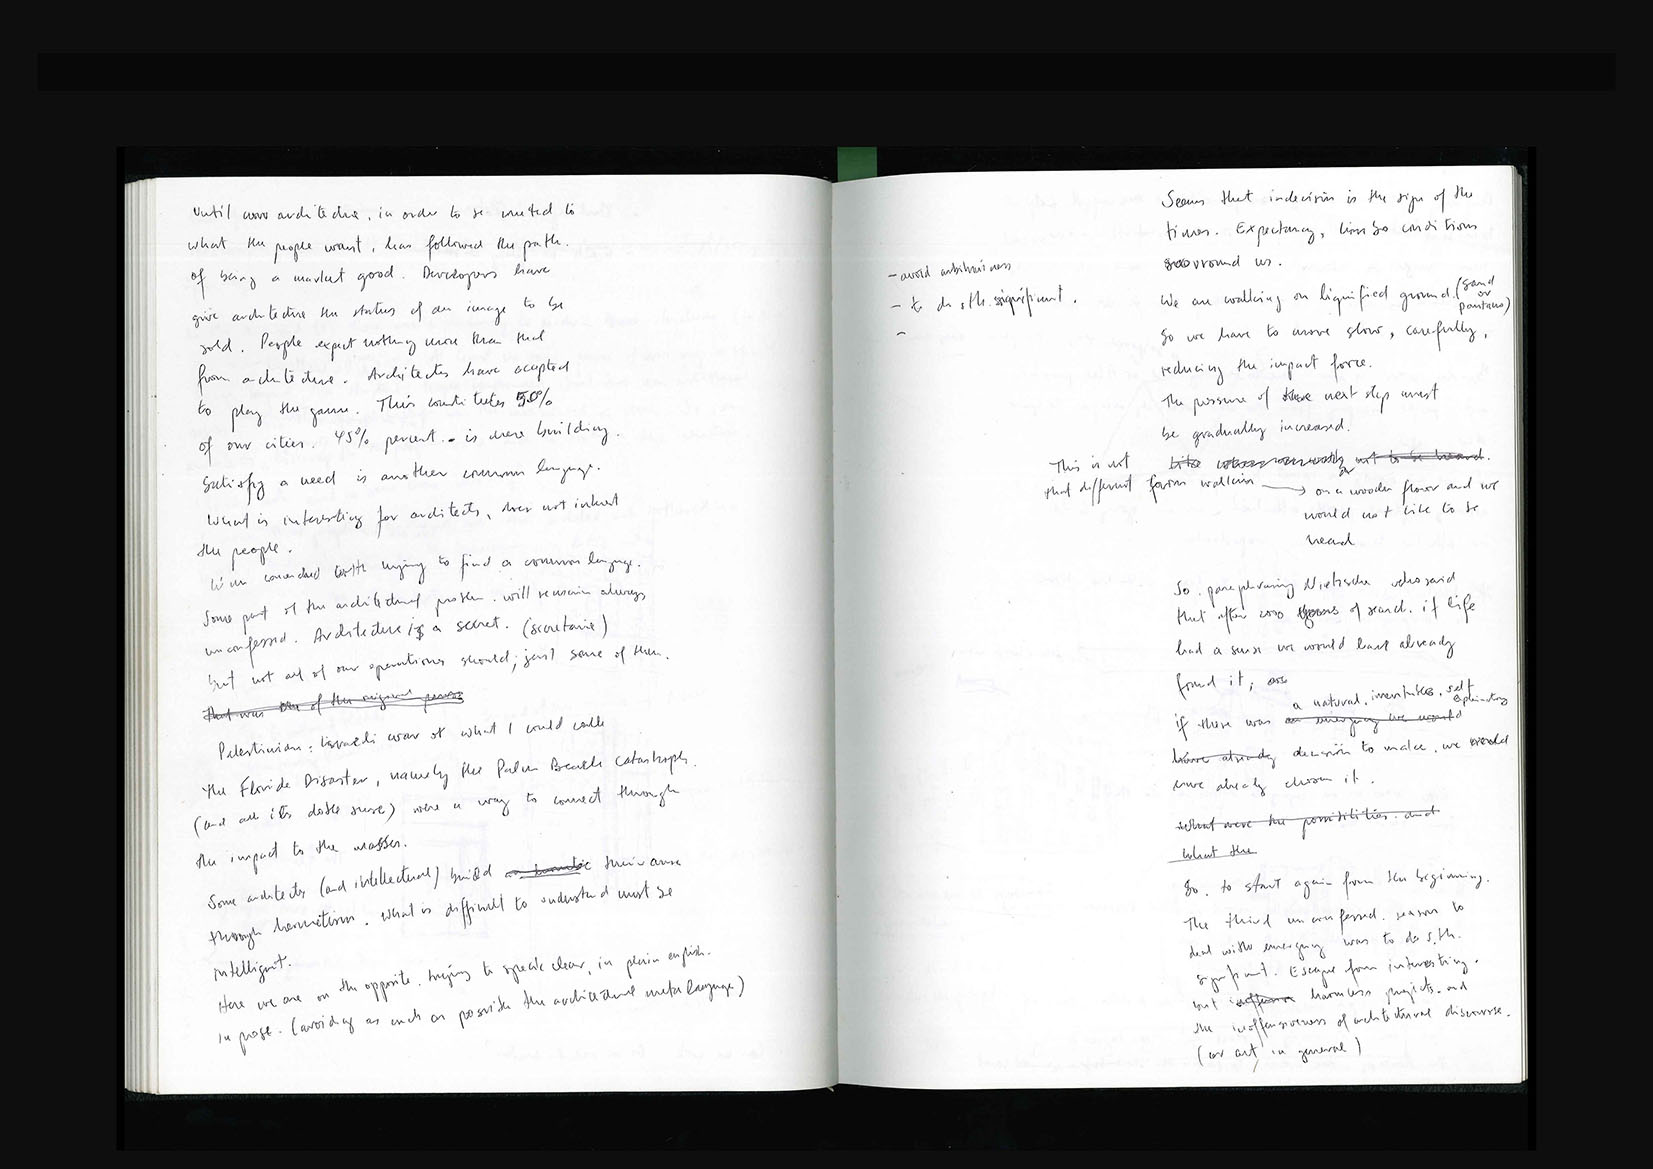 until now architecture, in order to be united to
what the people want, has followed the path
of being a market good. Developers have
give architecture the status of an image to be
sold. People expect nothing more than that
from architecture. Architects have accepted
to play the game. This constitutes 50%
of our cities. 45% percent - is mere building.
Satisfy a need is another common language.
What is interesting for architects, does not interest
the people.
trying to find a common language.
Some part of the architectural problem will remain always
unconfessed. Architecture is a secret. (secretaire)
but not all of our operations should; just some of them.
That was one of the original
Palestinian: Israeli war of what I could call
the Floride Disaster, namely the Palm Beach Catastroph.
(and all its doble sense) were a way to connect through
the impact to the masses.
Some architects (and intellectual) build their
through hermetism. What is difficult to understand must be
intelligent.
Here we are on the opposite, trying to speak clear, in plain english.
in prose. (avoiding as much as possible the architectural meta language)
- avoid arbitrariness
- to do sth. significant.
-
Seems that indecision is the sign of the
times. Expectancy, limbo conditions
surround us.
We are walking on liquified ground. (sand
or
pantano)
So we have to move slow, carefully,
reducing the impact force.
The pressure of next step must
be gradually increased.
This is not
not to be heard.
that different form walkin on a wooden floor and we
would not like to be
head
So, paraphrasing Nietzsche who said
that after 2000 years of search, if life
had a sense we would have already
found it;
a natural, inevitable, self
explanatory
if there was an emergency we would
have already decision to make, we would
have already chosen it.
what were the possibilities and
what the
So, to start again from the beginning.
The third unconfessed reason to
deal with emergency was to do sth.
significant. Escape from interesting
but harmless projects and
the inoffensiveness of architectural discourse.
(or art in general)